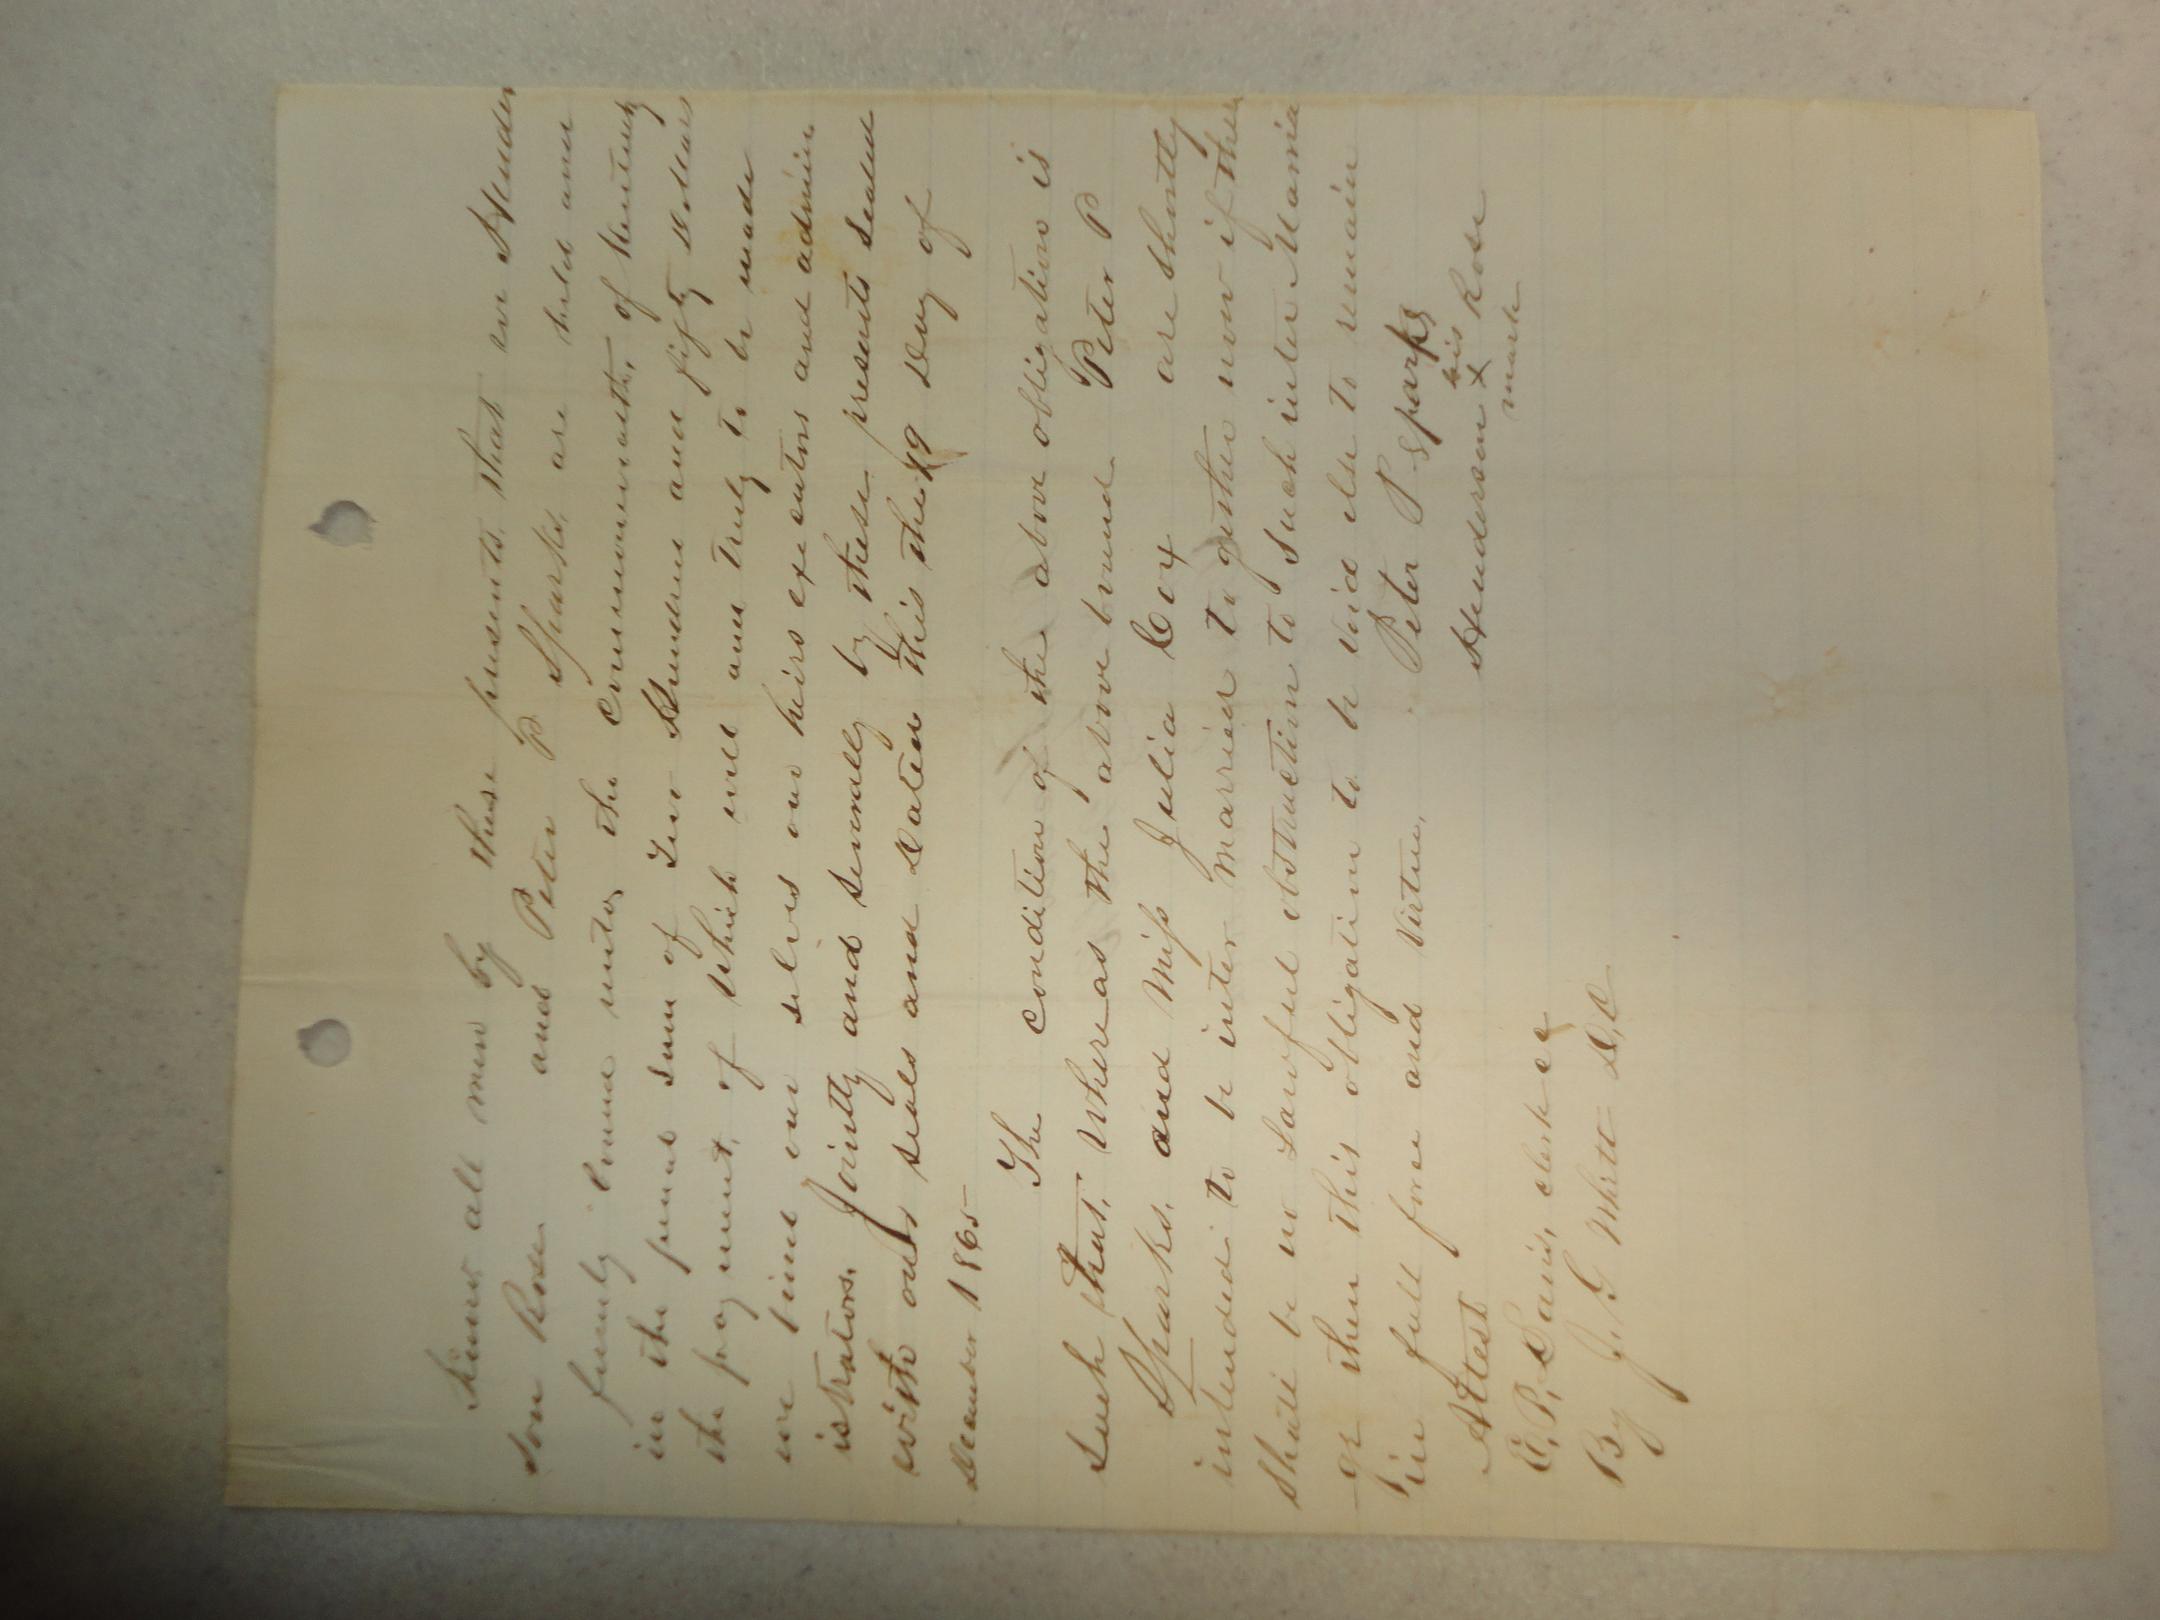 Know all men by these presents, that we Hender
son Rose and Peter P Sparks, are held and
firmly bound unto, the commonwealth, of Kentucky
in the penal sum of Two Hundred and fifty Dollars
the payment, of which well and truly to be made
we bind our selves our heirs executors and admin
istrators. Jointly and severally by these presents seald
with our seals and Dated this the 19 Day of
December 1865
The condition of the above obligation is
Such that, Where as the above bound Peter P
Sparks, and Miss Julia Cox are shortly
intended to be inter married to gether now if there
Shall be no Lawful obstruction to such inter Marria
ge then this obligation to be void else to remain
in full force and Virtue, Peter P Sparks
Attest Henderson his X mark Rose
E, P, Davis, clerk
By J. G White D,C